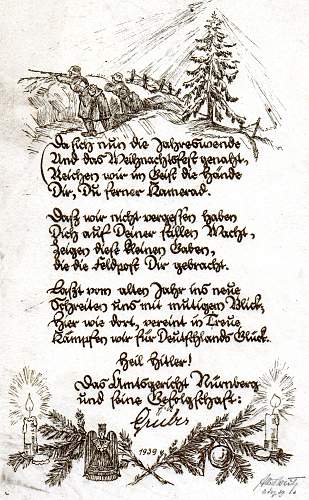 Da sich nun die Jahreswende
Und das Weihnachtsfest genaht,
Reichen wir im Geist die Hände
Dir, Du ferner Kamerad.
Daß wir nicht vergessen haben
Dich auf Deiner stillen Wacht,
Zeigen diese kleinen Gaben,
die die Feldpost Dir gebracht.
Laßt vom alten Jahr ins neue
Schreiten uns mit mutigem Blick;
Hier wie dort, vereint in Treue
Kämpfen wir für Deutschlands Glück.
Heil Hitler!
Das Amtsgericht Nürnberg
und seine Gefolgschaft:
1939